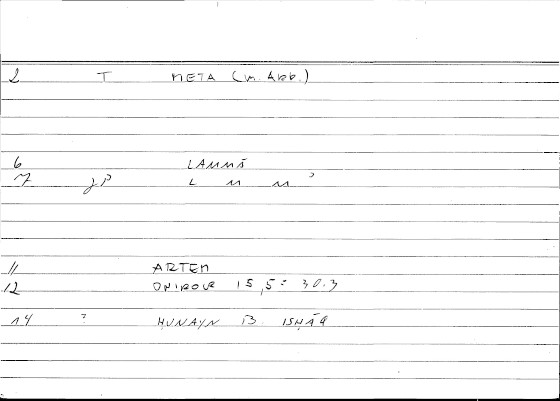 2 T META (m. Akk.)
6 LAMMĀ
7 JP L M M ʾ
11 ARTEM
12 ONIROCR 15,5 : 30.3
14 ? ḤUNAYN B. ISḤĀQ